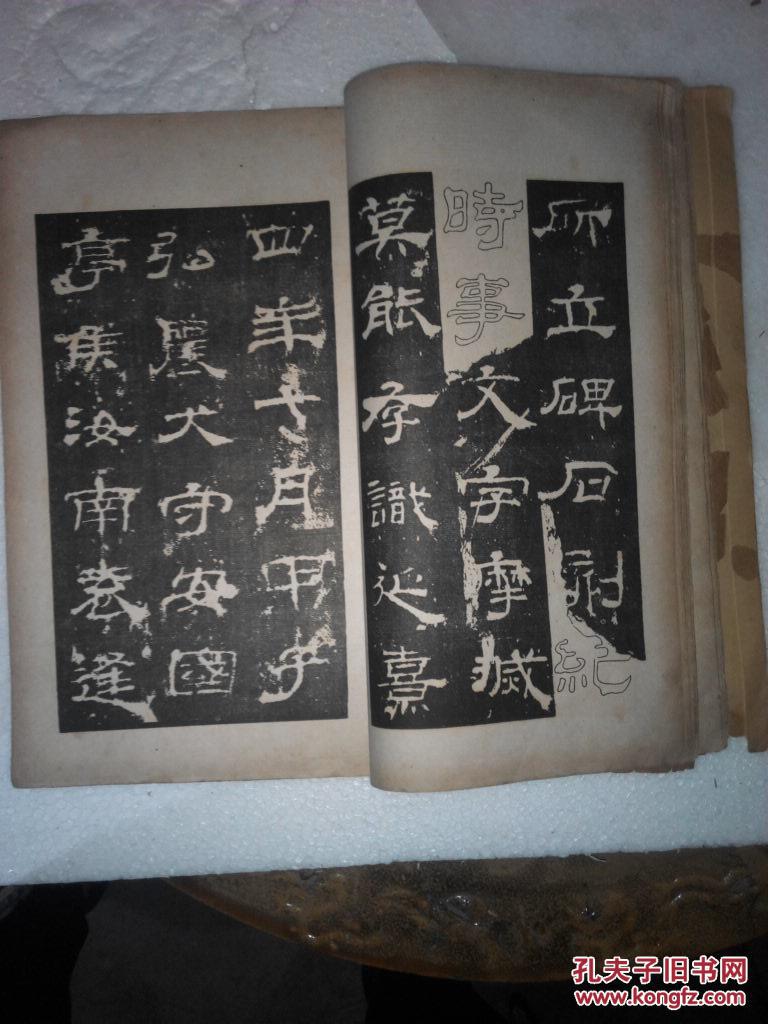 所立碑石刻紀
時事文字摩滅
莫能存識延熹
四年七月甲子
弘農大守安國
亭侯汝南袁逢
孔夫子旧书网
www.kongfz.com